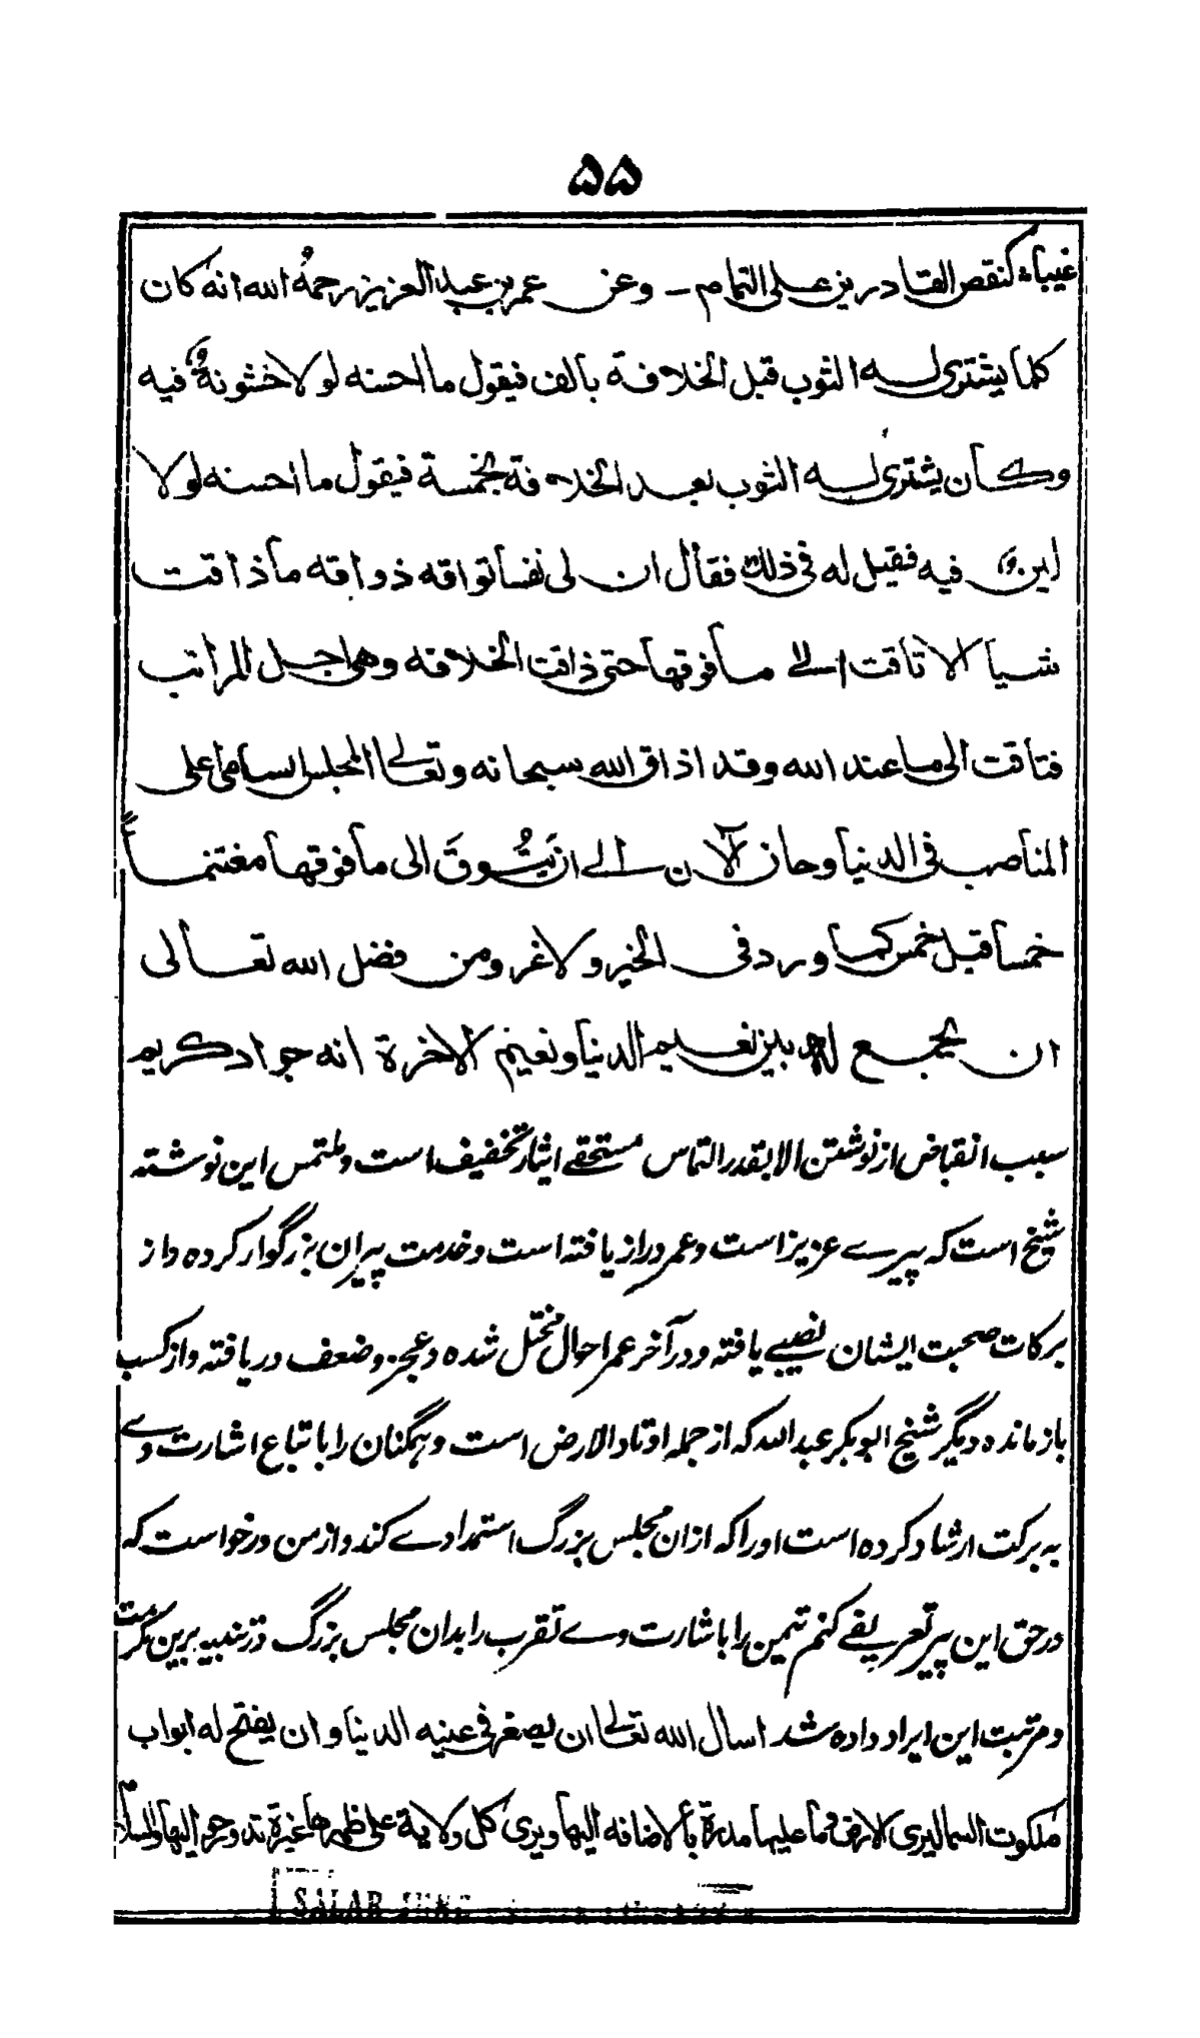 ۵۵
غیباء کنقص القادرین علی التمام ــ وعن عمر بن عبد العزیز رحمهُ الله انه کان
کلما یشتری له الثوب قبل الخلافة بالف فیقول ما احسنه لولا خشونةٌ فیه
وکان یشتری له الثوب بعد الخلافة بخمسة فیقول ما احسنه لولا
لین فیه فقیل له فی ذلك فقال ان لی نفسا تواقه ذواقه ما ذاقت
شیا الا تاقت الی ما فوقها حتی ذاقت الخلافه وهی اجل المراتب
فتاقت الی ما عند الله وقد اذاق الله سبحانه وتعالی المجلس السامی اعلی
المناصب فی الدنیا وحان الآن الے ان یَتُوقَ الی ما فوقها مغتنماً
خمسا قبل خمس کما ورد فی الخبر ولا غرو من فضل الله تعالی
ان یجمع له بین نعیم الدنیا ونعیم الاخرة انه جواد کریم
سبب انقباض از نوشتن الا بقدر التماس مستحقے ایثار تخفیف است و ملتمس این نوشته
شیخ است که پیرے عزیز است و عمر دراز یافته است و خدمت پیران بزرگوار کرده و از
برکات صحبت ایشان نصیبے یافته و در آخر عمر احوال مختل شده و عجز و ضعف دریافته و از کسب
باز مانده دیگر شیخ ابوبکر عبدالله که از جمله اوتاد الارض است و همگنان را باتباع اشارت وے
به برکت ارشاد کرده است او را که ازان مجلس بزرگ استمدادے کند و از من درخواست که
در حق این پیر تعریفے کنم تیمن را باشارت وے تقرب را بدان مجلس بزرگ در تنبیه برین مکرمت
و مرتبت این ایراد داده شد اسال الله تعالی ان یصغر فی عینیه الدنیا و ان یفتح له ابواب
ملکوت السما لیری الارض و ما علیها مدرة بالاضافه الیها ویری کل ولایة علی ظهرها غبرة
SALAR JUNG